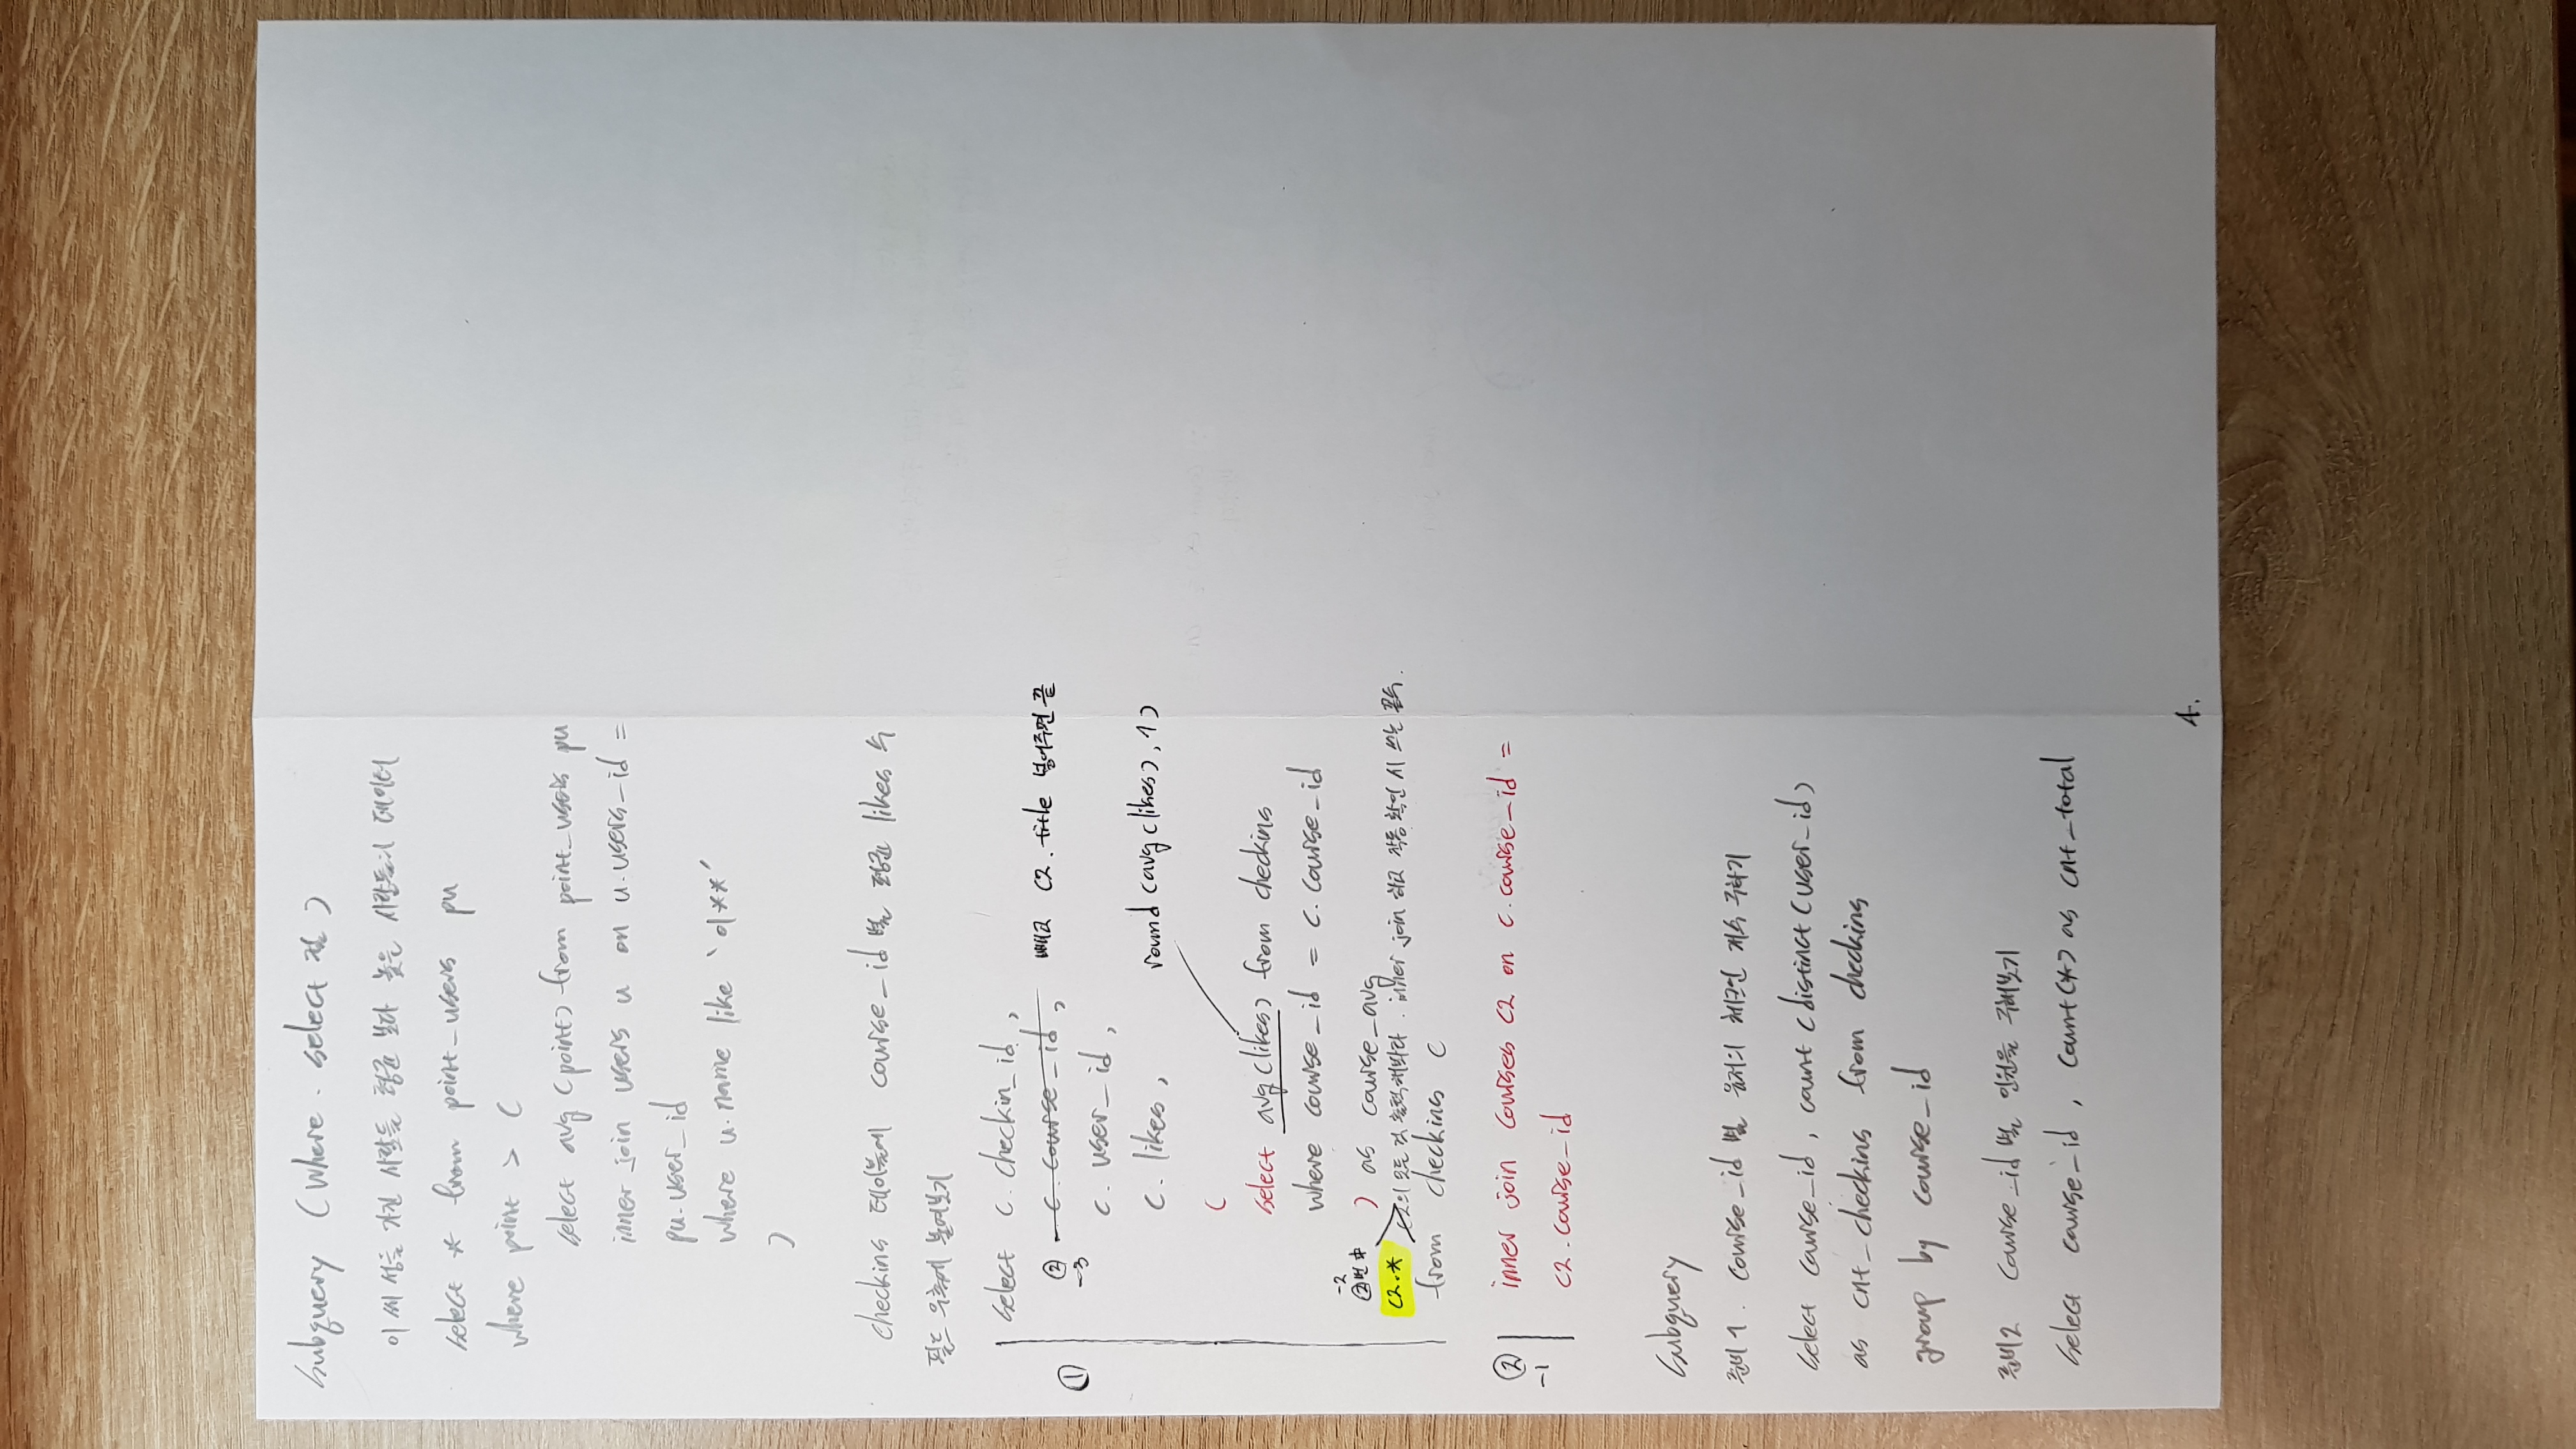 Subquery (where. select 절)
이씨 성을 가진 사람들 평균 보다 높은 사람들의 데이터
select * from point_users pu
where point > (
select avg(point) from point_users pu
inner join users u on u.users_id =
pu.user_id
where u.name like '이**'
)
checkins 테이블에 course_id별 평균 likes 수
필드 우측에 붙여보기
① select c.checkin_id,
②-3 c.course_id, 빼고 c2.title 넣어주면 끝
c.user_id,
c.likes, round(avg(likes),1)
(
select avg(likes) from checkins
where course_id = c.course_id
) as course_avg
-2 ②번 中
c2.* 모든 것 출력해봐라. inner join 하고 작동 확인 시
from checkins c
②-1 inner join courses c2 on c.course_id =
c2.course_id
Subquery
준비1. course_id별 유저의 체크인 개수 구하기
select course_id, count(distinct(user_id)
as cnt_checkins from checkins
group by course_id
준비2 course_id별 인원을 구해보기
select course_id, count(*) as cnt_total
4.